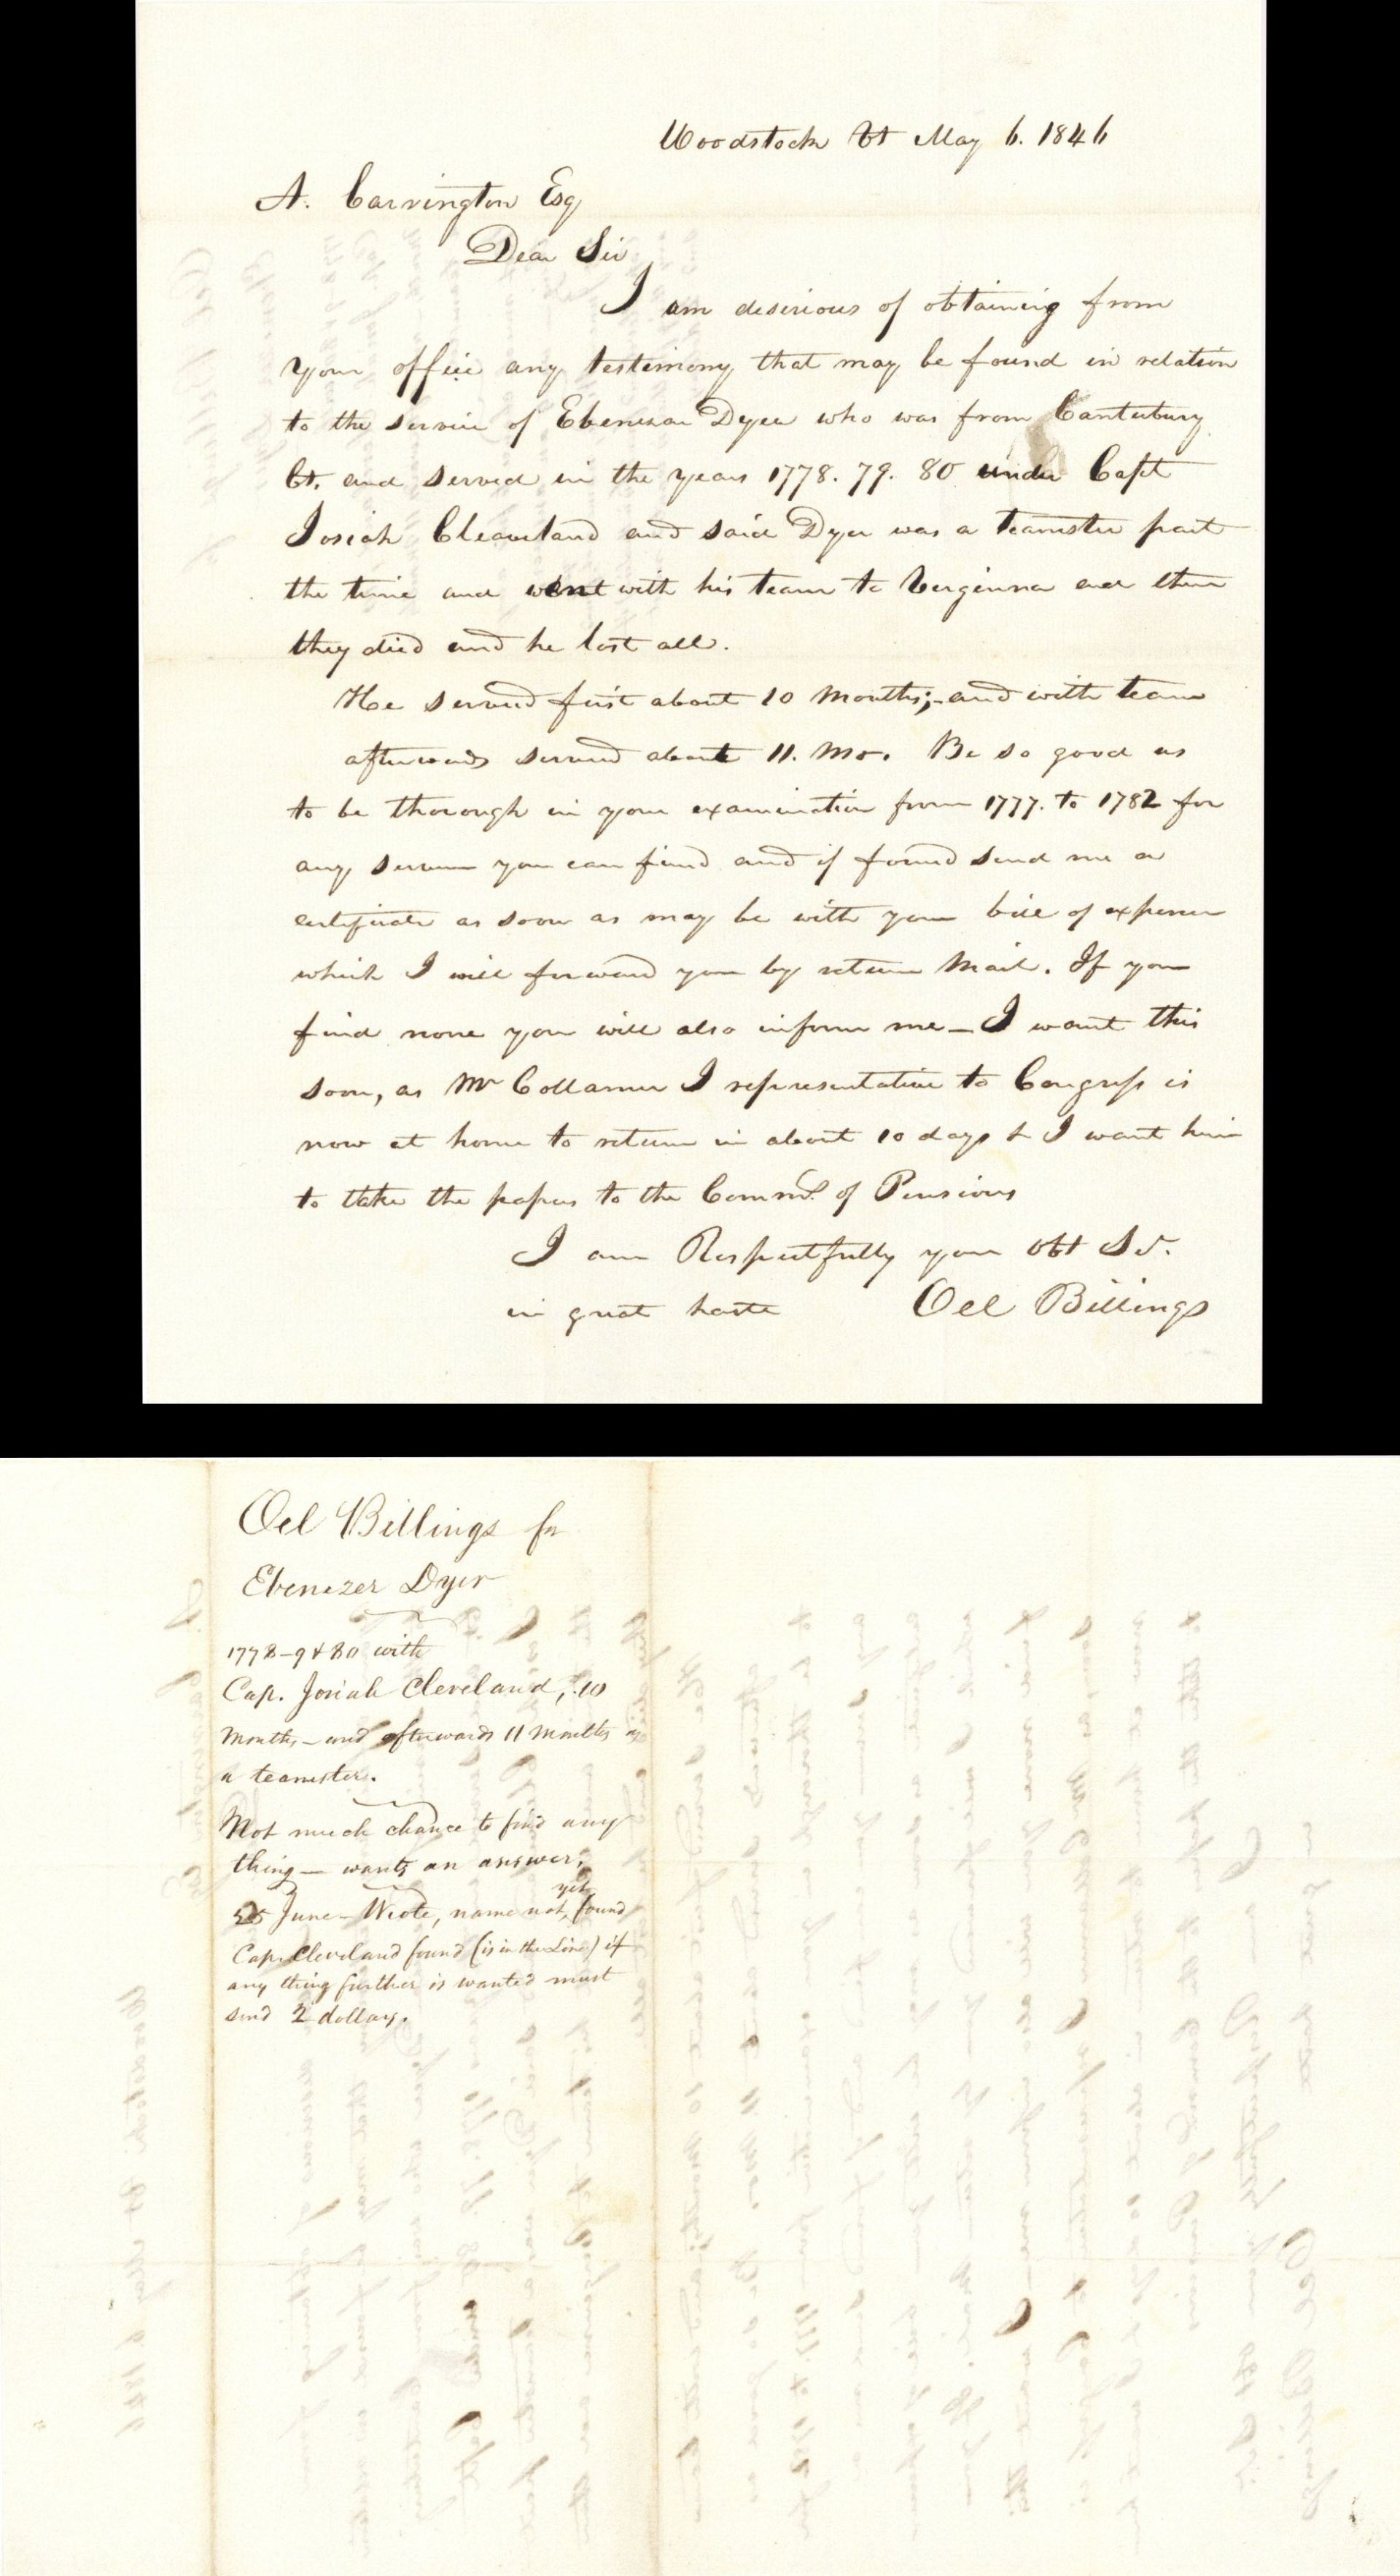 Woodstock Vt May 6. 1846
A. Carrington Esq
Dear Sir
I am desirious of obtaining from
your office any testimony that may be found in relation
to the service of Ebenezar Dyer who was from Canterbury
Ct. and served in the years 1778. 79. 80 under Capt
Josiah Cleaveland and said Dyer was a teamster part
the time and went with his team to Verginna and there
they died and he lost all.
He served first about 10 Months;- and with team
afterwards served about 11. Mo. Be so good as
to be thorough in your examination from 1777. to 1782 for
any service you can find and if found send me a
certificate as soon as may be with your bill of expense
which I will forward you by return Mail. If you
find none you will also inform me — I want this
soon, as Mr Collamer I representative to Congress is
now at home to return in about 10 days & I want him
to take the papers to the Commr. of Pensions
I am Respectfully your Obt Sv.
in great haste Oel Billings
Oel Billings for
Ebenezer Dyer
1778-9 & 80 with
Cap. Josiah Cleveland, 10
Months, - and afterwards 11 months as
a teamster.
Not much chance to find any
thing — wants an answer.
yet
25 June - Wrote, name not, found
Cap. Cleveland found (is in the Line) if
any thing further is wanted must
send 2 dollars.